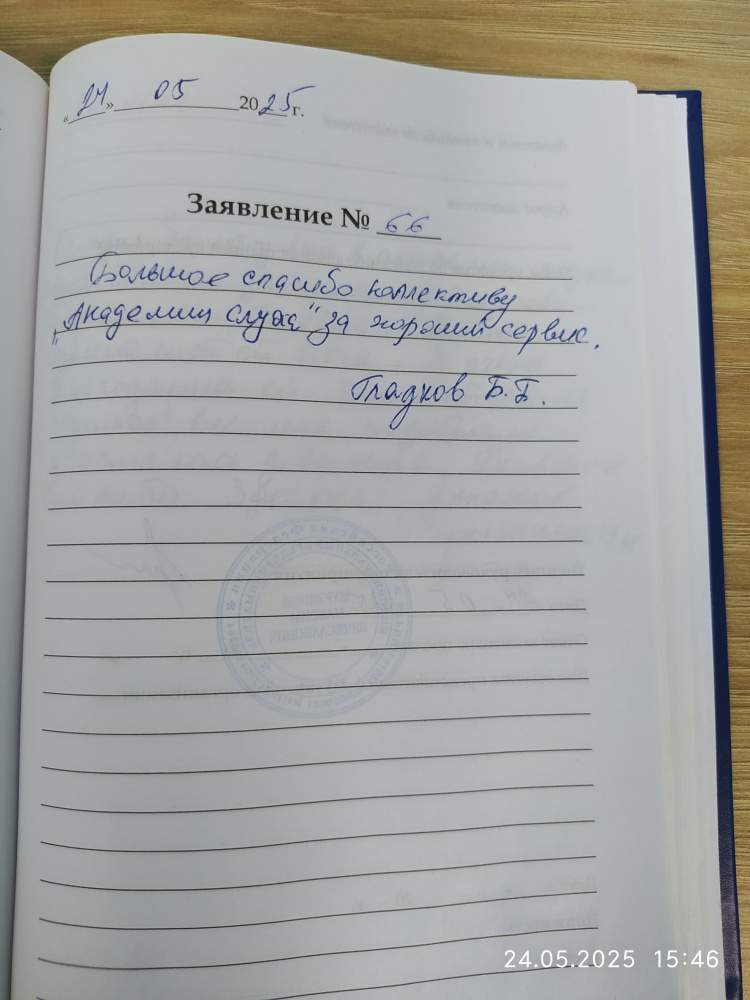 «24» 05 2025 г.
Заявление № 66
Большое спасибо коллективу
„Академии слуха" за хороший сервис.
Гладков Б.Г.
24.05.2025 15:46